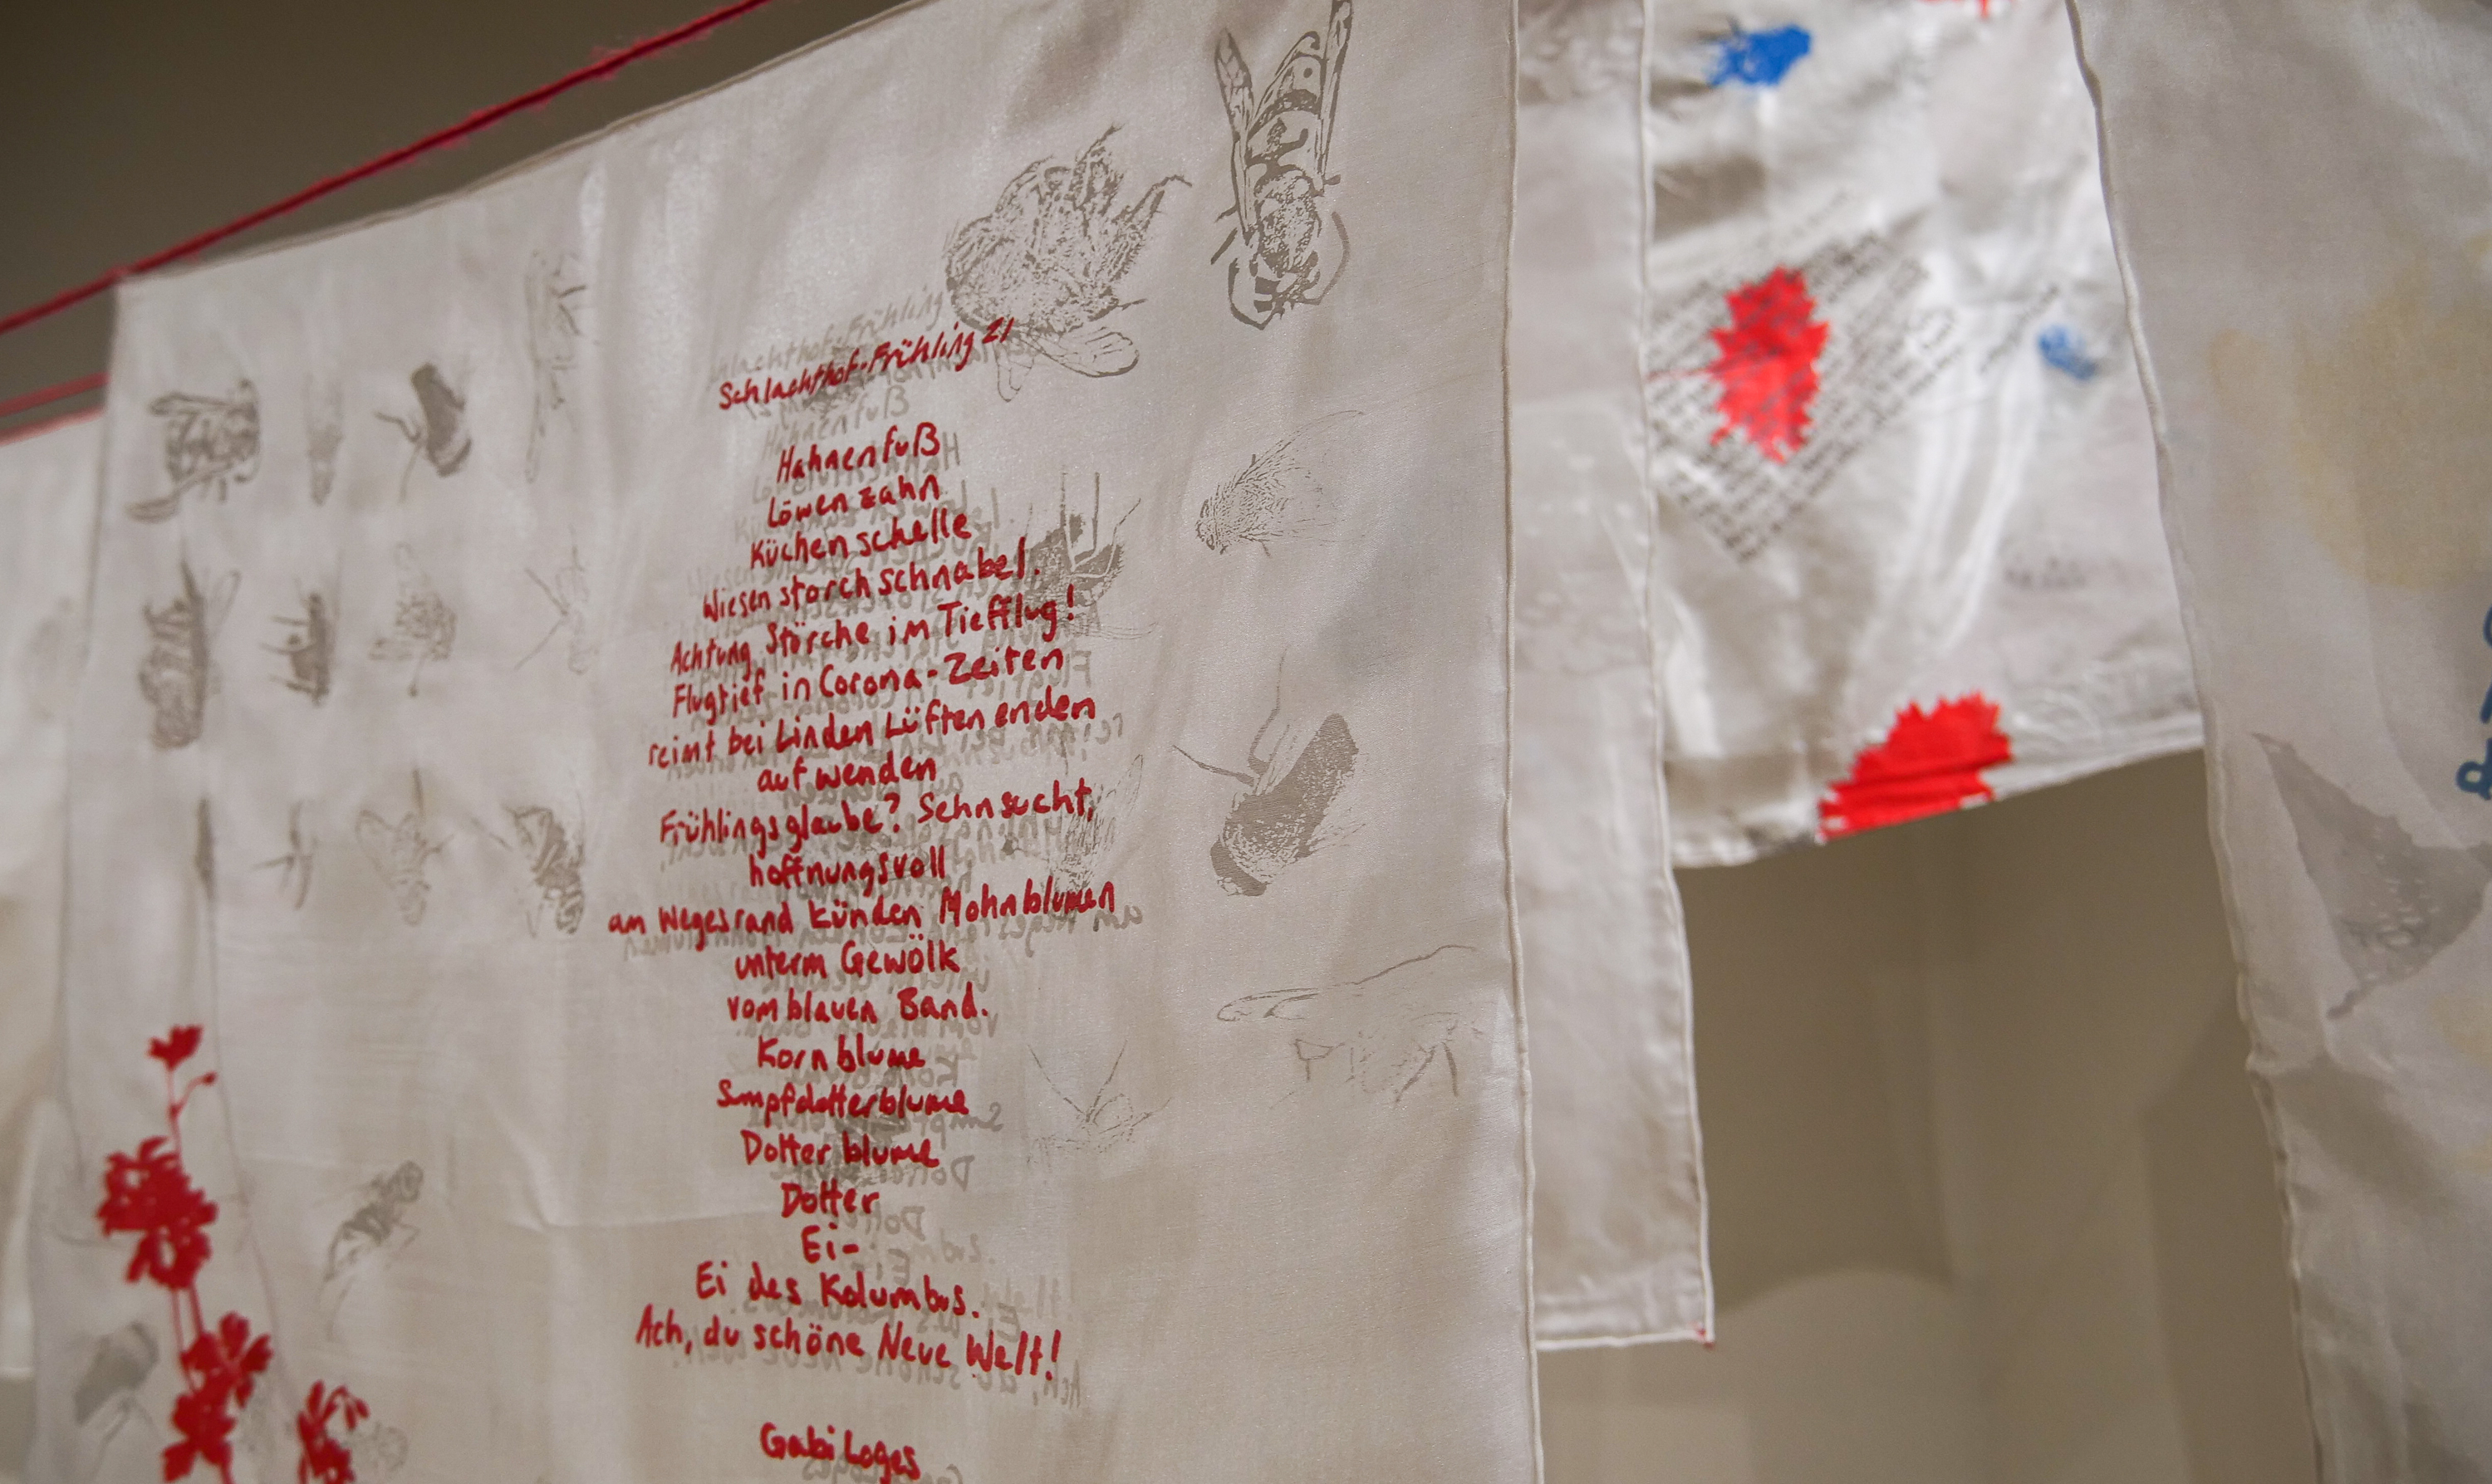 Schlachthof-Frühling 21
Hahnenfuß
Löwenzahn
Küchenschelle
Wiesenstorchschnabel.
Achtung Störche im Tiefflug!
Flugtief in Corona-Zeiten
reimt bei Linden Lüften enden
auf wenden
Frühlingsglaube? Sehnsucht,
hoffnungsvoll
am Wegesrand künden Mohnblumen
unterm Gewölk
vom blauen Band.
Kornblume
Sumpfdotterblume
Dotterblume
Dotter
Ei-
Ei des Kolumbus.
Ach, du schöne Neue Welt!
Gabi Loges